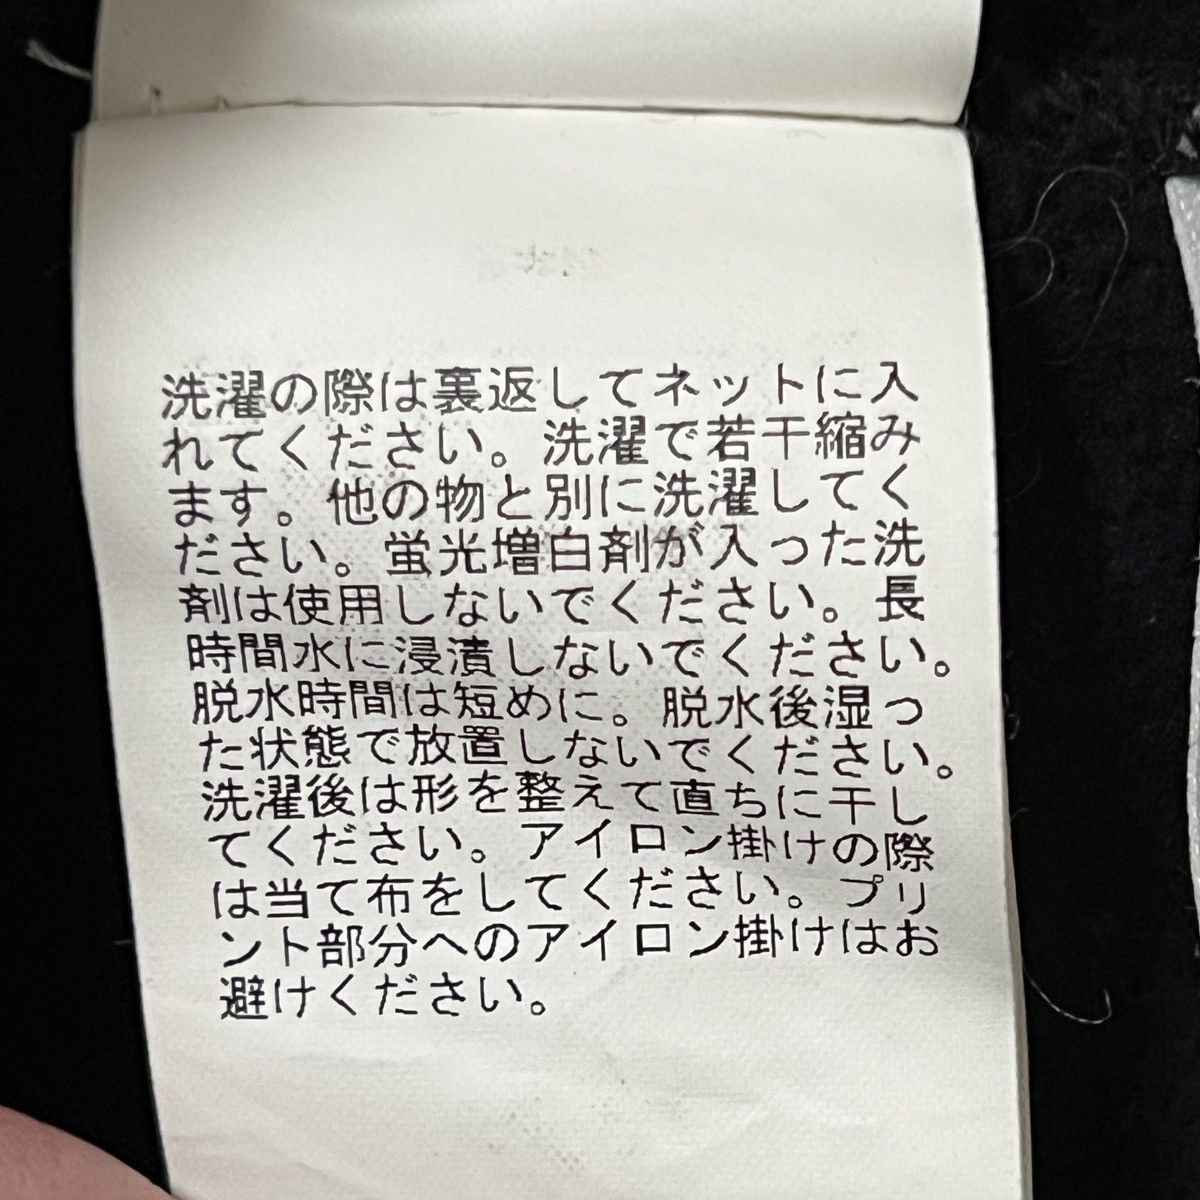 洗濯の際は裏返してネットに入
れてください。洗濯で若干縮み
ます。他の物と別に洗濯してく
ださい。蛍光増白剤が入った洗
剤は使用しないでください。長
時間水に浸漬しないでください。
脱水時間は短めに。脱水後湿っ
た状態で放置しないでください。
洗濯後は形を整えて直ちに干し
てください。アイロン掛けの際
は当て布をしてください。プリ
ント部分へのアイロン掛けはお
避けください。